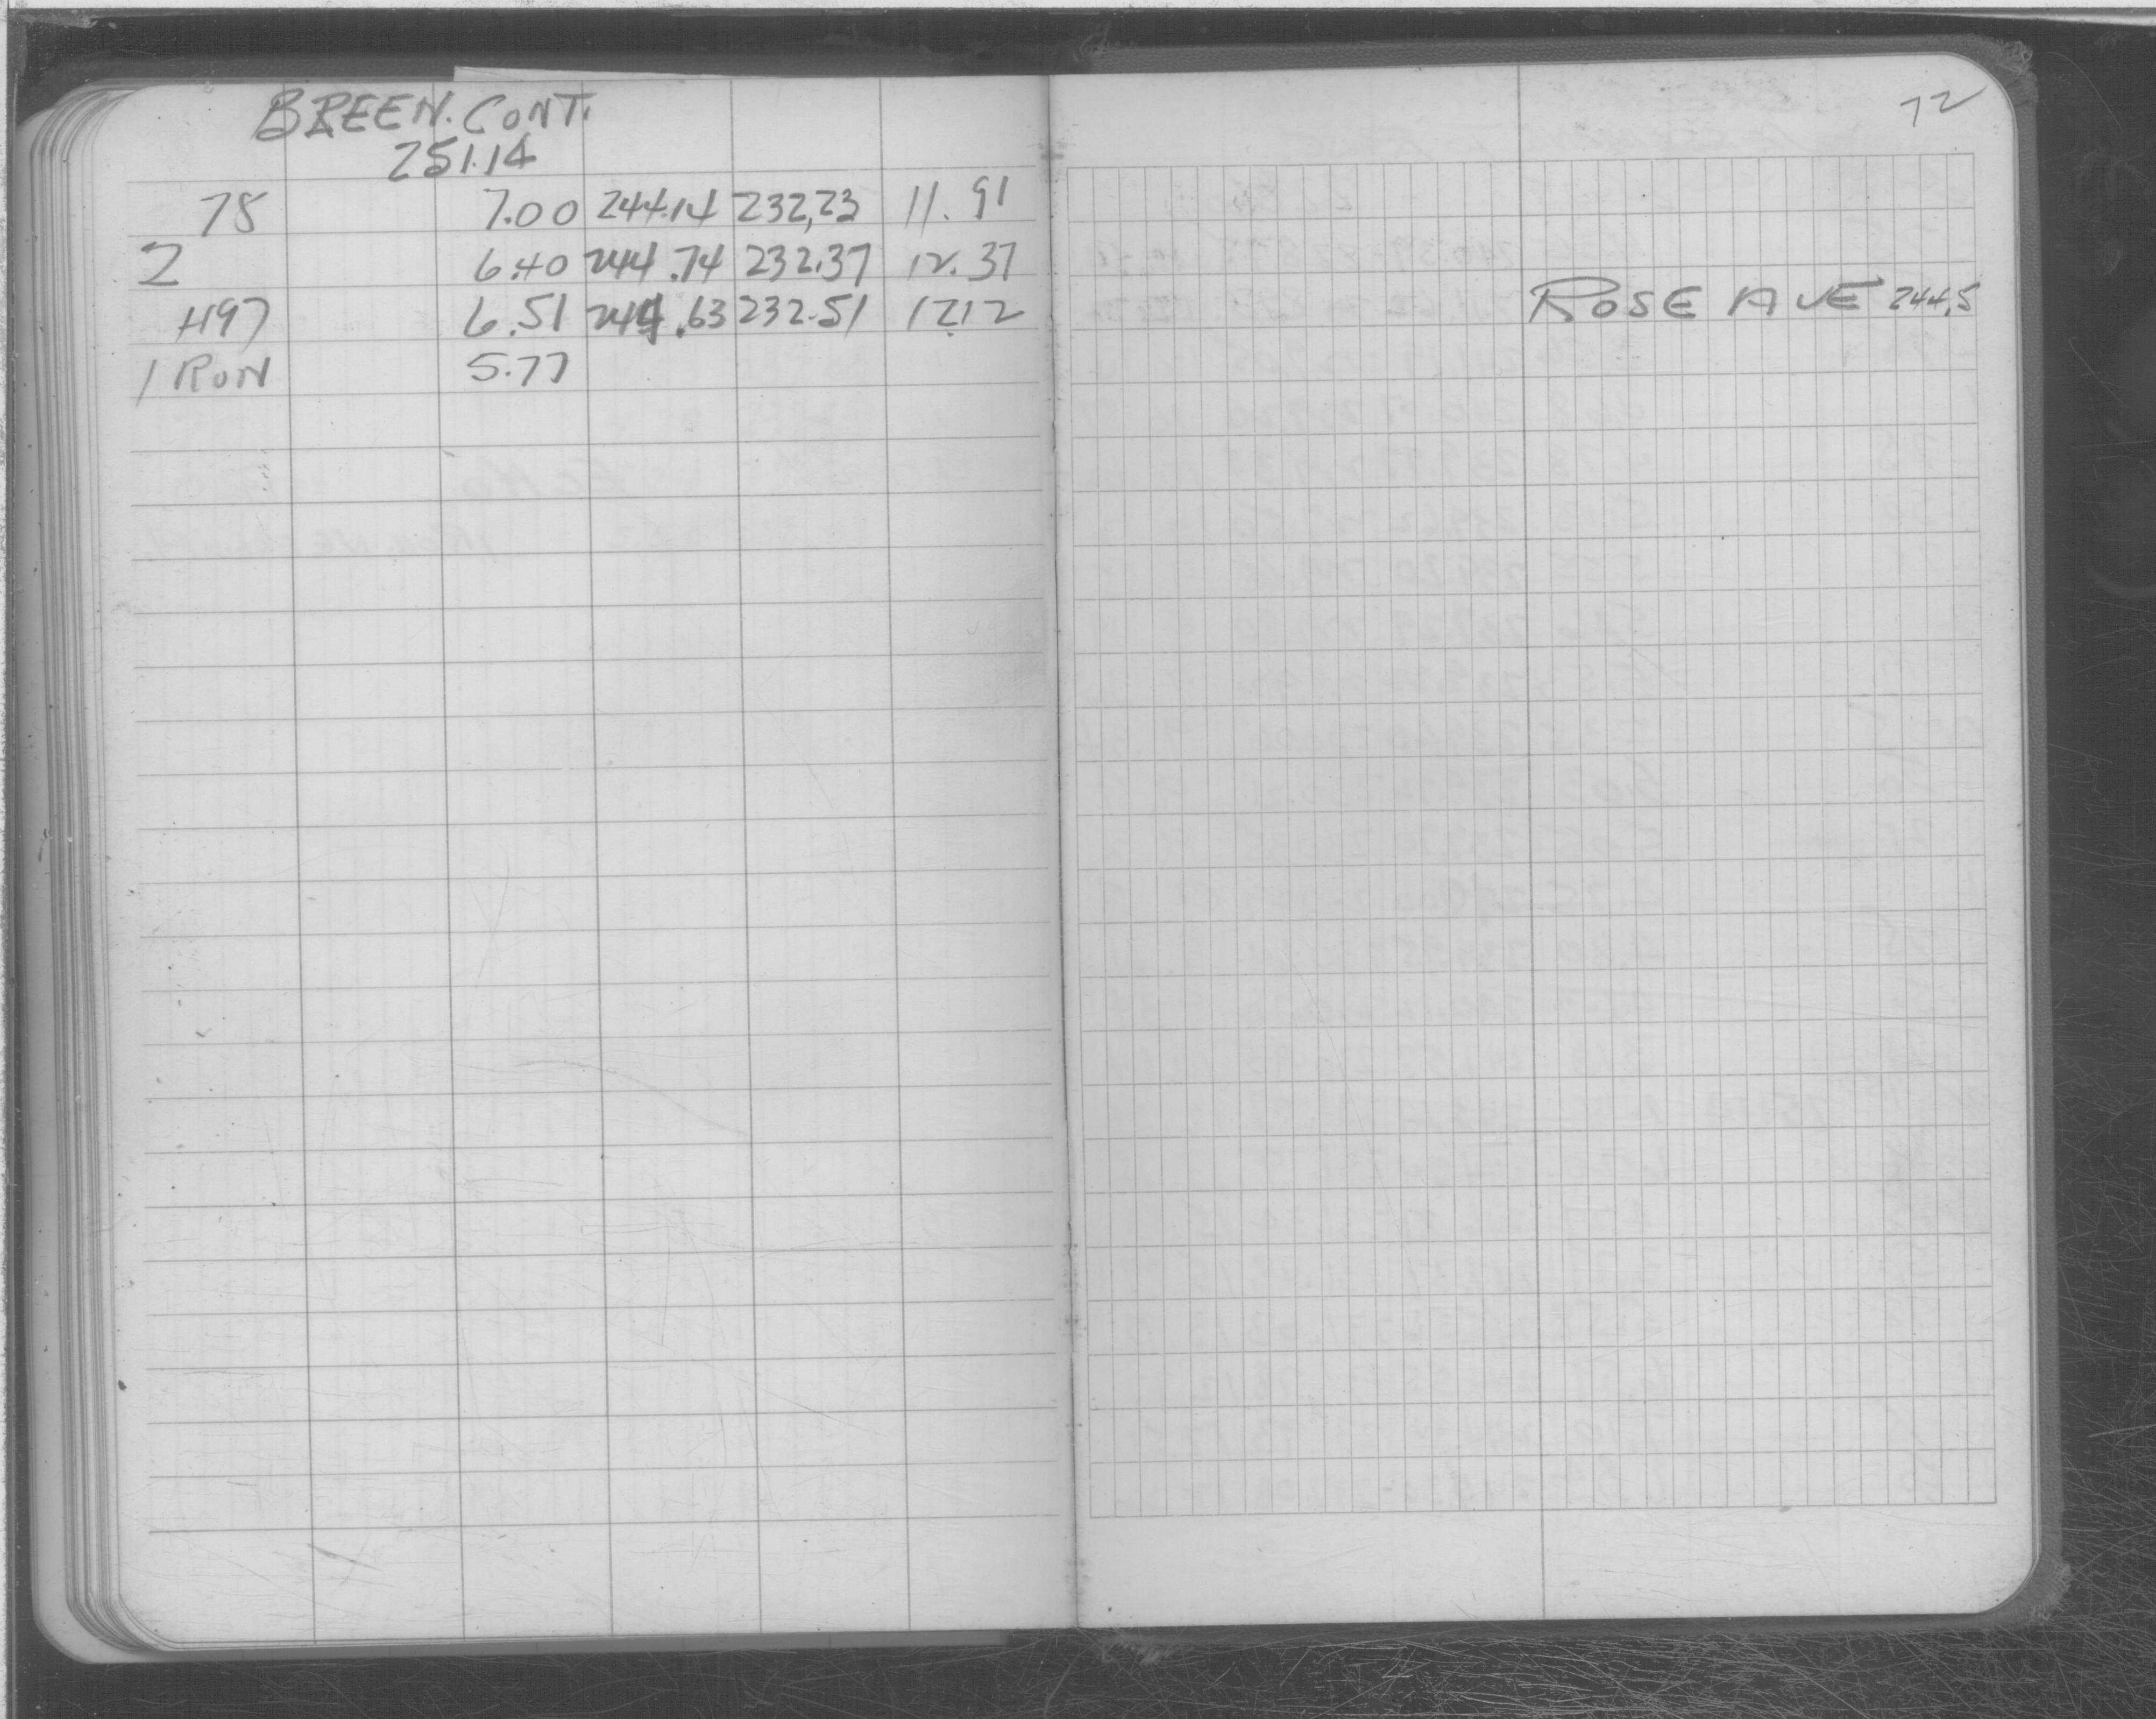 BREEN. CONT.
251.14
75 7.00 244.14 232,23 11.91
2 6.40 244.74 232.37 12.37
+197 6.51 244.63 232.51 12.12
IRON 5.77
72
ROSE AVE 244.5